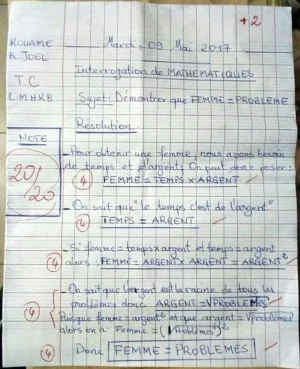 +2
KOUAME
K. JOEL
Mardi, 09 Mai 2017
Interrogation de MATHEMATIQUES
T C
L M H K B
Sujet: Démontrer que FEMME = PROBLEME
Résolution
NOTE
20/20
- Pour obtenir une femme, nous avons besoin
de temps et d'argent; On peut donc poser:
④ FEMME = TEMPS x ARGENT
- On sait que "le temps c'est de l'argent"
④ TEMPS = ARGENT
- Si femme = temps x argent et temps = argent
④ alors: FEMME = ARGENT x ARGENT = ARGENT²
- On sait que l'argent est la racine de tous les
problèmes donc ARGENT = √PROBLEMES
④ Puisque femme = argent² et que argent = √problèmes
alors on a: Femme = (√Problèmes)²
④ Donc FEMME = PROBLEMES